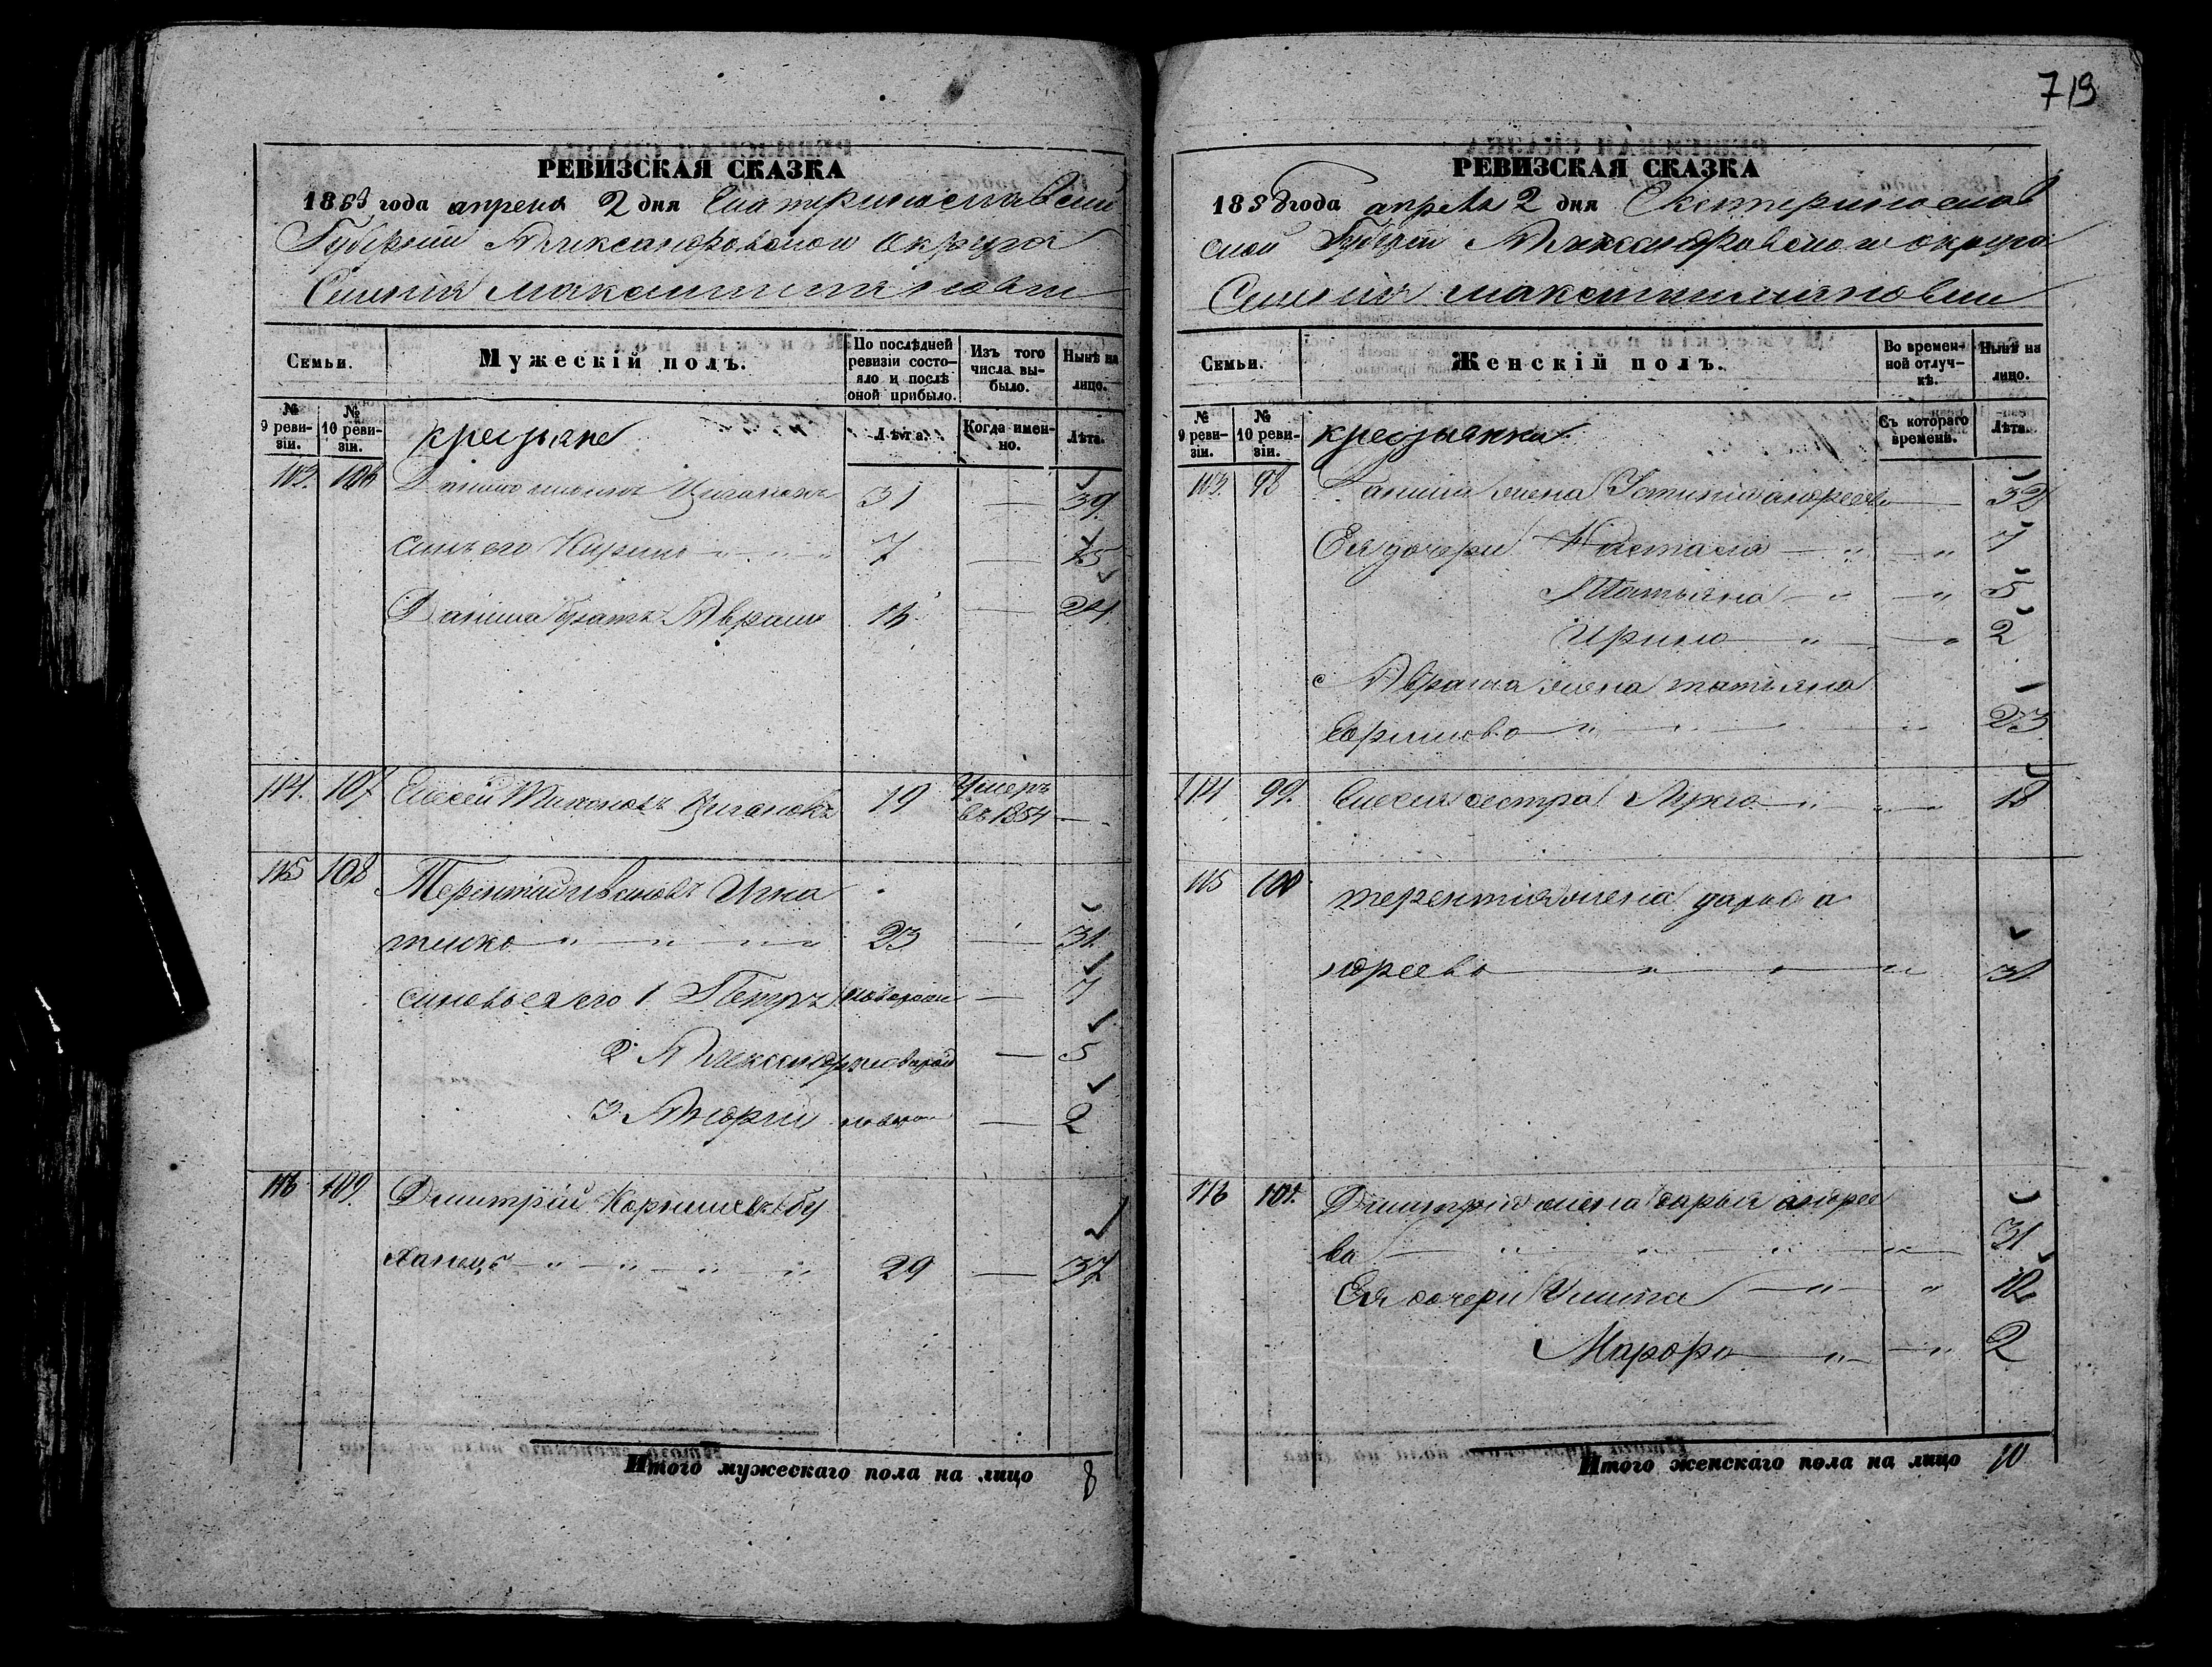 719
РЕВИЗСКАЯ СКАЗКА
1858 года апреля 2 дня Екатеринославской
Губернии Александровского округа
Селения
Семьи.
Мужескій полъ.
По послѣдней ревизіи состояло и послѣ оной прибыло.
Изъ того числа выбыло.
Нынѣ на лицо.
№ 9 ревизіи.
№ 10 ревизіи.
крестьяне
Лѣта.
Когда именно.
Лѣта.
113. 106 Данило Циганокъ 31 — 39
сынъ его Кирилъ 7 — 15
Данила братъ Аврамъ 16 — 24
114. 107 Елесей Циганокъ 19 Умеръ въ 1854 —
115 108 Терентий Ивановъ Игна
тенко 23 — 31
сыновья его 1 Петръ — 7
2 Александръ — 5
3 Андрей — 2
116 109 Дмитрий Корнеевъ Бу
ханецъ 29 — 37
Итого мужескаго пола на лицо 8
РЕВИЗСКАЯ СКАЗКА
1858 года апреля 2 дня Екатеринослав
ской Губернии Александровского округа
Селения Максимилияновки
Семьи.
Женскій полъ.
Во временной отлучкѣ.
Нынѣ на лицо.
№ 9 ревизіи.
№ 10 ревизіи.
крестьянки
Съ котораго времени.
Лѣта.
113. 98 Данила жена Устиния андреева 32
Ея дочери Настасия 7
Татьяна 5
Ирина 2
Аврама жена татьяна
Ефимова 23
114 99. Елесея сестра 18
115 100 терентия жена дарья а
ндреева 31
116 101. Дмитрия жена дарья андрее
ва 31
Ея дочери 12
2
Итого женскаго пола на лицо 10